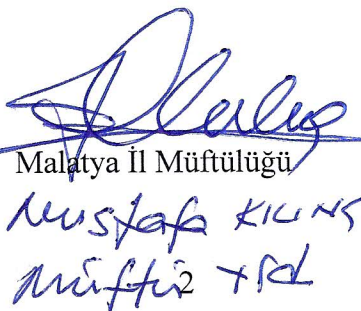 Malatya İl Müftülüğü
Mustafa KILINÇ
Müftü Yrd
2